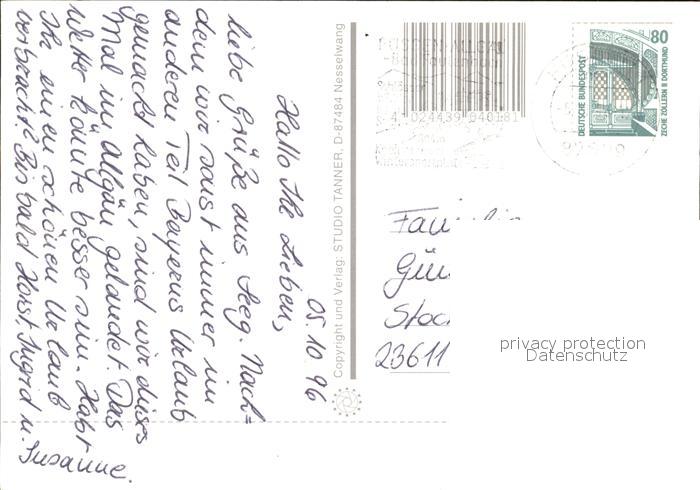 05.10.96
Hallo Ihr Lieben,
liebe Grüße aus Seeg. Nach=
dem wir sonst immer im
anderen Teil Bayerns Urlaub
gemacht haben, sind wir dieses
Mal im Allgäu gelandet. Das
Wetter könnte besser sein. Habt
Ihr einen schönen Urlaub
verbracht? Bis bald Horst, Ingrid u.
Susanne.
Copyright und Verlag: STUDIO TANNER, D-87484 Nesselwang
4 024439 040181
80
DEUTSCHE BUNDESPOST
ZECHE ZOLLERN II DORTMUND
Fam
Gün
Stoc
23611
privacy protection
Datenschutz